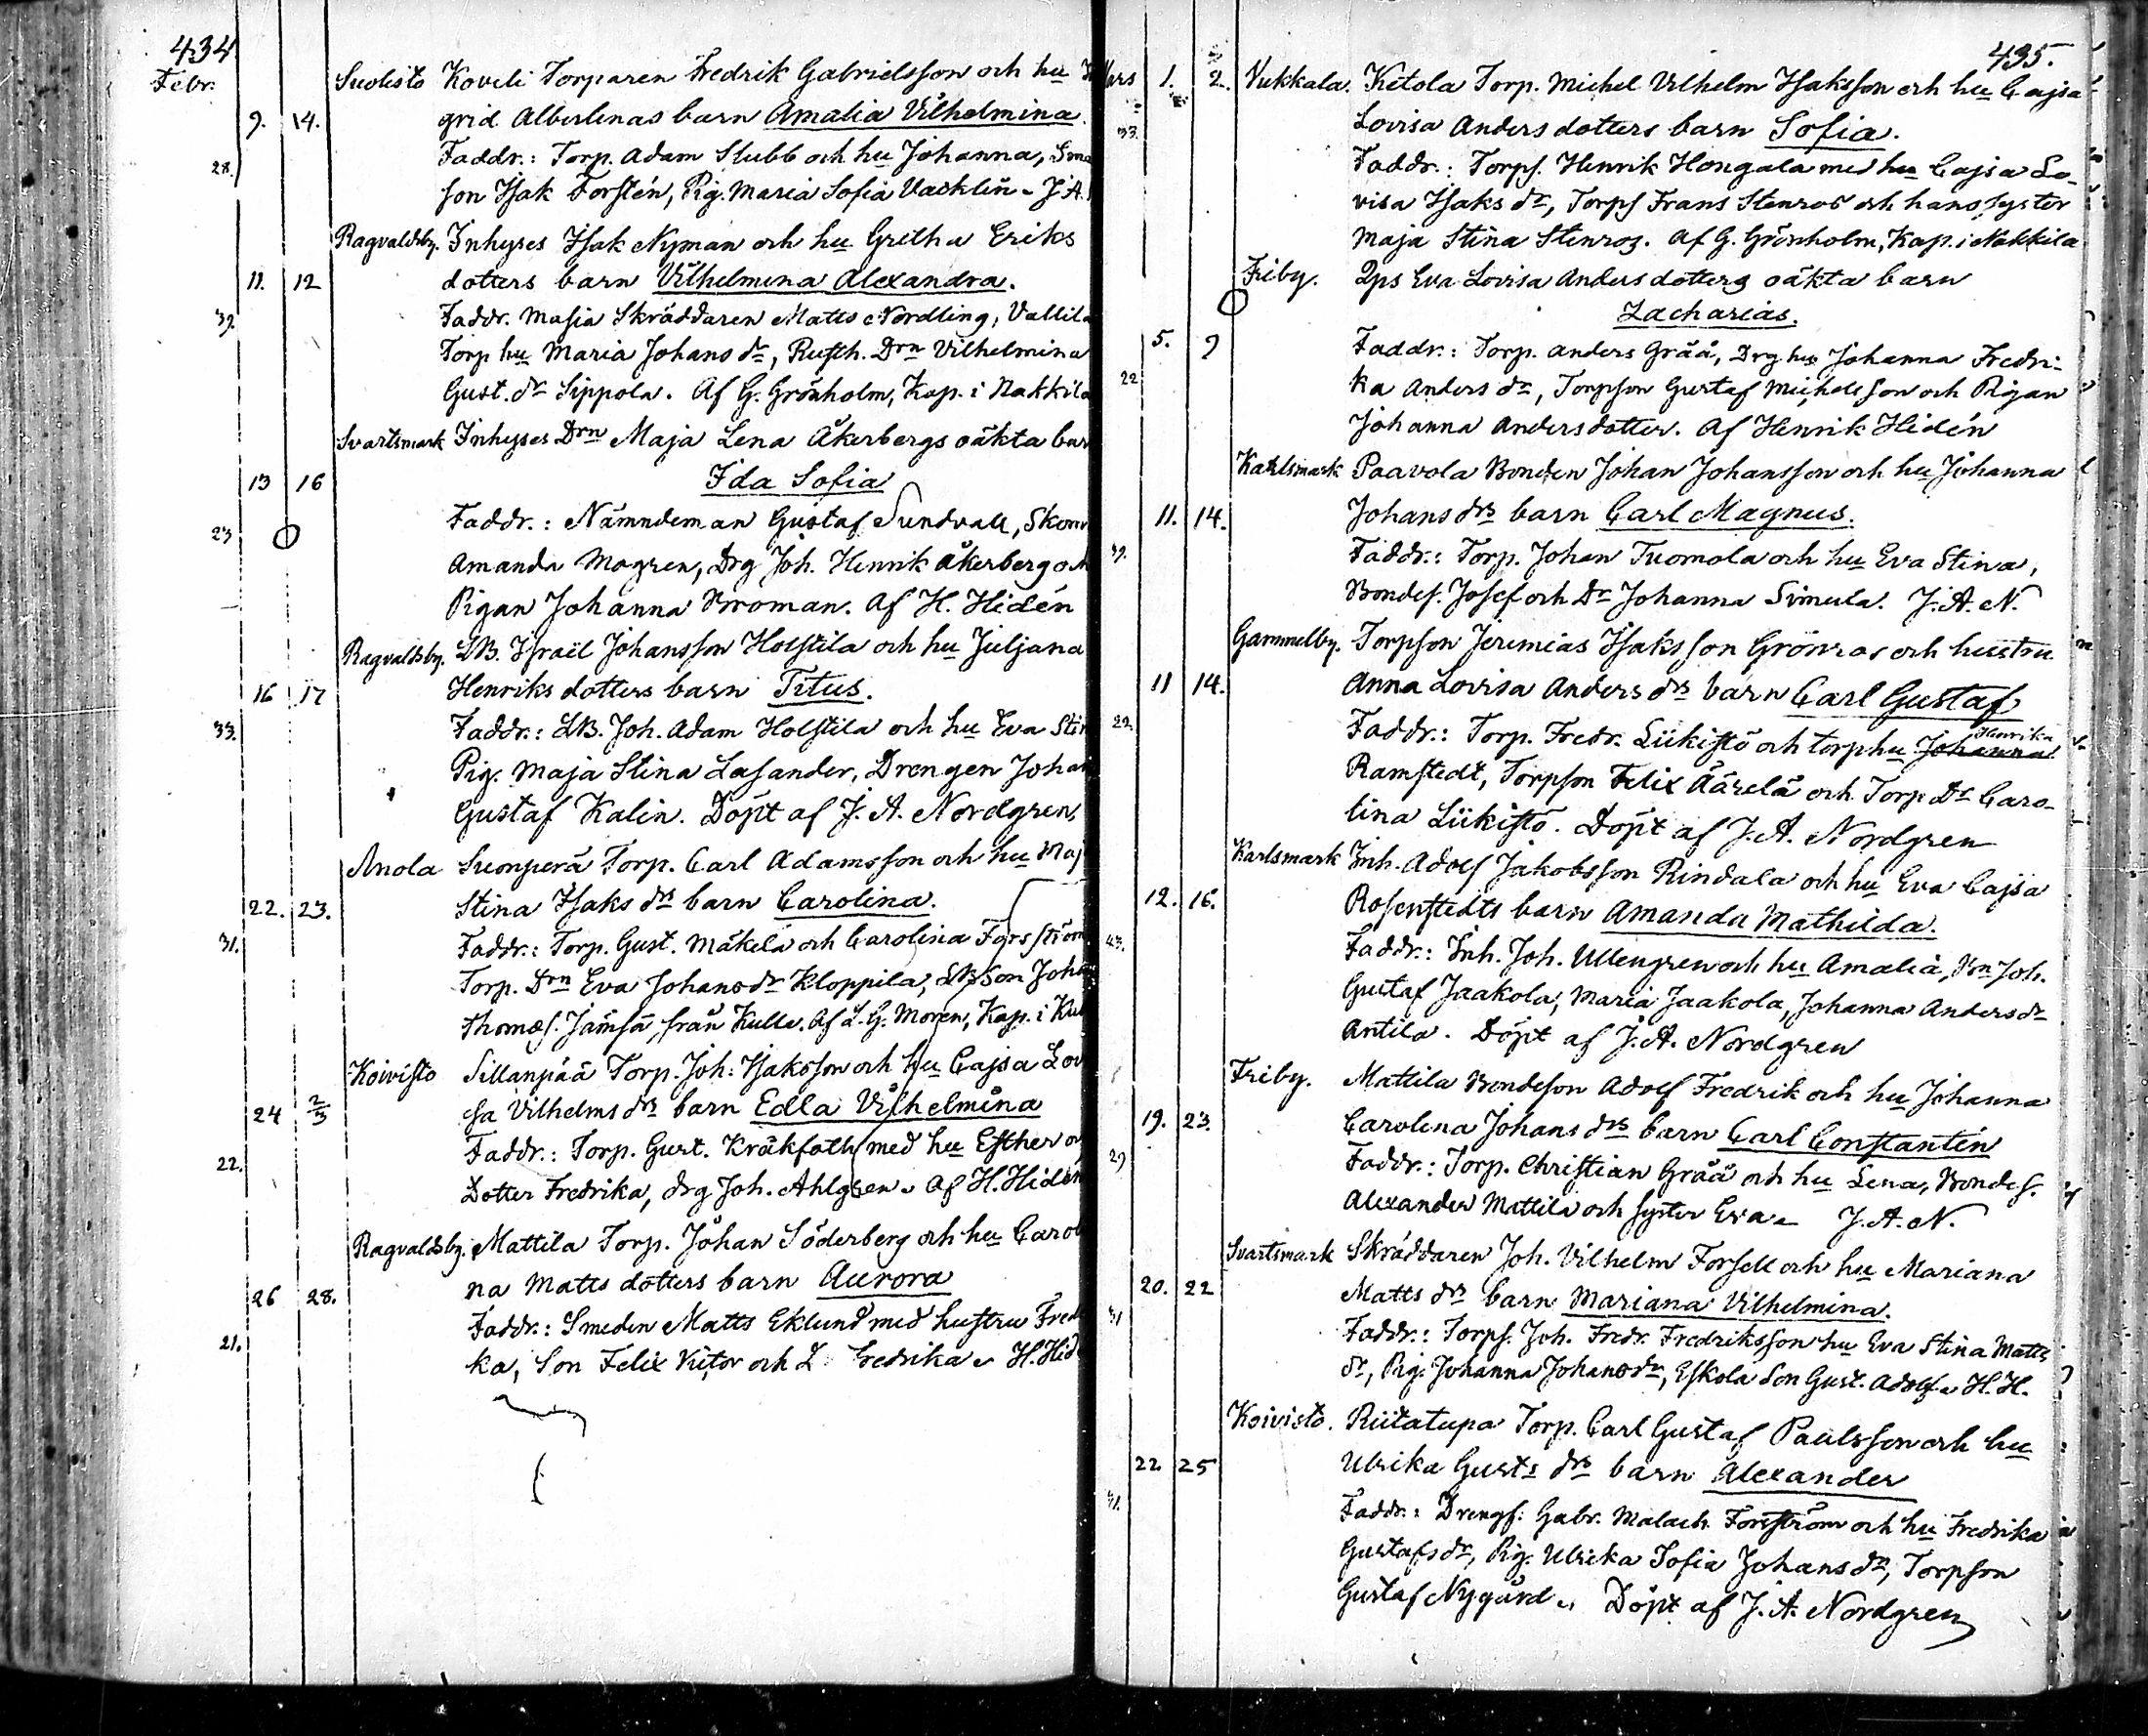 434
Febr.
Suolisto Koveli Torparen Fredrik Gabrielsson och hu
9. 14. grid Albertinas barn Amalia Vilhelmina.
28. Faddr.: Torp. Adam Stubb och hu Johanna,
son Isak Forstén, Pig. Maria Sofia Vacklin - J. A.
Ragvaldsby. Inhyses Isak Nyman och hu Gretha Eriks
11. 12 dotters barn Vilhelmina Alexandra.
39. Faddr. Masia Skräddaren Matts Nordling, Vallila
Torp hu Maria Johans dr, Rusth. Drn Vilhelmina
Gust. dr Sippola. Af G. Grönholm, Kap. i Nakkila
Svartsmark Inhyses Drn Maja Lena Åkerbergs oäkta bar
13 16 Ida Sofia
23 Faddr.: Nämndeman Gustaf Sundvall,
Amanda Mogren, Drg Joh. Henrik Åkerberg och
Pigan Johanna Vroman. Af H. Hidén
Ragvaldsby. LB. Israël Johansson Holstila och hu Juljana
16 17 Henriks dotters barn Titus.
33. Faddr.: LB. Joh. Adam Holstila och hu Eva Stin
Pig. Maja Stina Lasander, Drengen Johan
Gustaf Kalin. Döpt af J. A. Nordgren,
Anola Suonperä Torp. Carl Adamsson och hu Maj
22. 23. Stina Isaks drs barn Carolina.
31. Faddr.: Torp. Gust. Mäkelä och Carolina Forsström
Torp. Drn Eva Johans dr Kloppila, LBson Joh
Thomæs. Jämsä från Kulla. Af L. G. Moren, Kap. i Kul
Koivisto Sillanpää Torp. Joh. Isaksson och hu Cajsa Lov
24 2/3 sa Vilhelms drs barn Edla Vilhelmina
22. Faddr.: Torp. Gust. Kråkfoth med hu Esther o
Dotter Fredrika, drg Joh. Ahlgren. Af H. Hidén
Ragvaldsby. Mattila Torp. Johan Söderberg och hu Caroli
26 28. na Matts dotters barn Aurora
21. Faddr.: Smeden Matts Eklund med hustru Fred
ka, Son Felix Victor och D. Fredrika. H. Hid
435.
Mars 1. 2. Vukkala. Ketola Torp. Michel Vilhelm Isaksson och hu Cajsa
33. Lovisa Anders dotters barn Sofia.
Faddr.: Torps. Henrik Hongala med hu Cajsa Lo-
visa Isaks dr, Torps Frans Stenros och hans syster
Maja Stina Stenros. Af G. Grönholm, Kap. i Nakkila
Friby. Qps Eva Lovisa Anders dotters oäkta barn
Zacharias.
5. 9 Faddr.: Torp. Anders Gråå, Drg hu Johanna Fredri-
22 ka Anders dr, Torpson Gustaf Michelsson och Pigan
Johanna Andersdotter. Af Henrik Hidén
Karlsmark Paavola Bonden Johan Johansson och hu Johanna
11. 14. Johans drs barn Carl Magnus.
39. Faddr.: Torp. Johan Tuomola och hu Eva Stina,
Bondes. Josef och Dr Johanna Simula. J. A. N.
Gammelby. Torpson Jeremias Isaksson Grönroos och hustru
11 14. Anna Lovisa Anders drs barn Carl Gustaf
Henrika
22 Faddr.: Torp. Fredr. Liikistö och torp hu Johanna
Ramstedt, Torpson Felix Äärelä och Torp. Dr Caro-
lina Liikistö. Döpt af J. A. Nordgren
Karlsmark Inh. Adolf Jakobsson Rindala och hu Eva Cajsa
12. 16. Rosenstedts barn Amanda Mathilda.
43. Faddr.: Inh. Joh. Ullengren och hu Amalia, Bn Joh.
Gustaf Jaakola, Maria Jaakola, Johanna Anders dr
Antila. Döpt af J. A. Nordgren
Friby. Mattila Bondeson Adolf Fredrik och hu Johanna
19. 23. Carolina Johans drs barn Carl Constantin
29 Faddr.: Torp. Christian Gråå och hu Lena, Bondes.
Alexander Mattila och syster Eva. J. A. N.
Svartsmark Skräddaren Joh. Vilhelm Forsell och hu Mariana
20. 22 Matts drs barn Mariana Vilhelmina.
31 Faddr.: Torps. Joh. Fredr. Fredriksson hu Eva Stina Matts
dr, Pig. Johanna Johans dr, Eskola Son Gust. Adolf. H. H.
Koivisto. Riitatupa Torp. Carl Gustaf Paulsson och hu
22 25 Ulrika Gusts drs barn Alexander
31. Faddr.: Drengs: Gabr. Malach. Forsström och hu Fredrika
Gustafs dr, Pig. Ulrika Sofia Johans dr, Torpson
Gustaf Nygård. Döpt af J. A. Nordgren